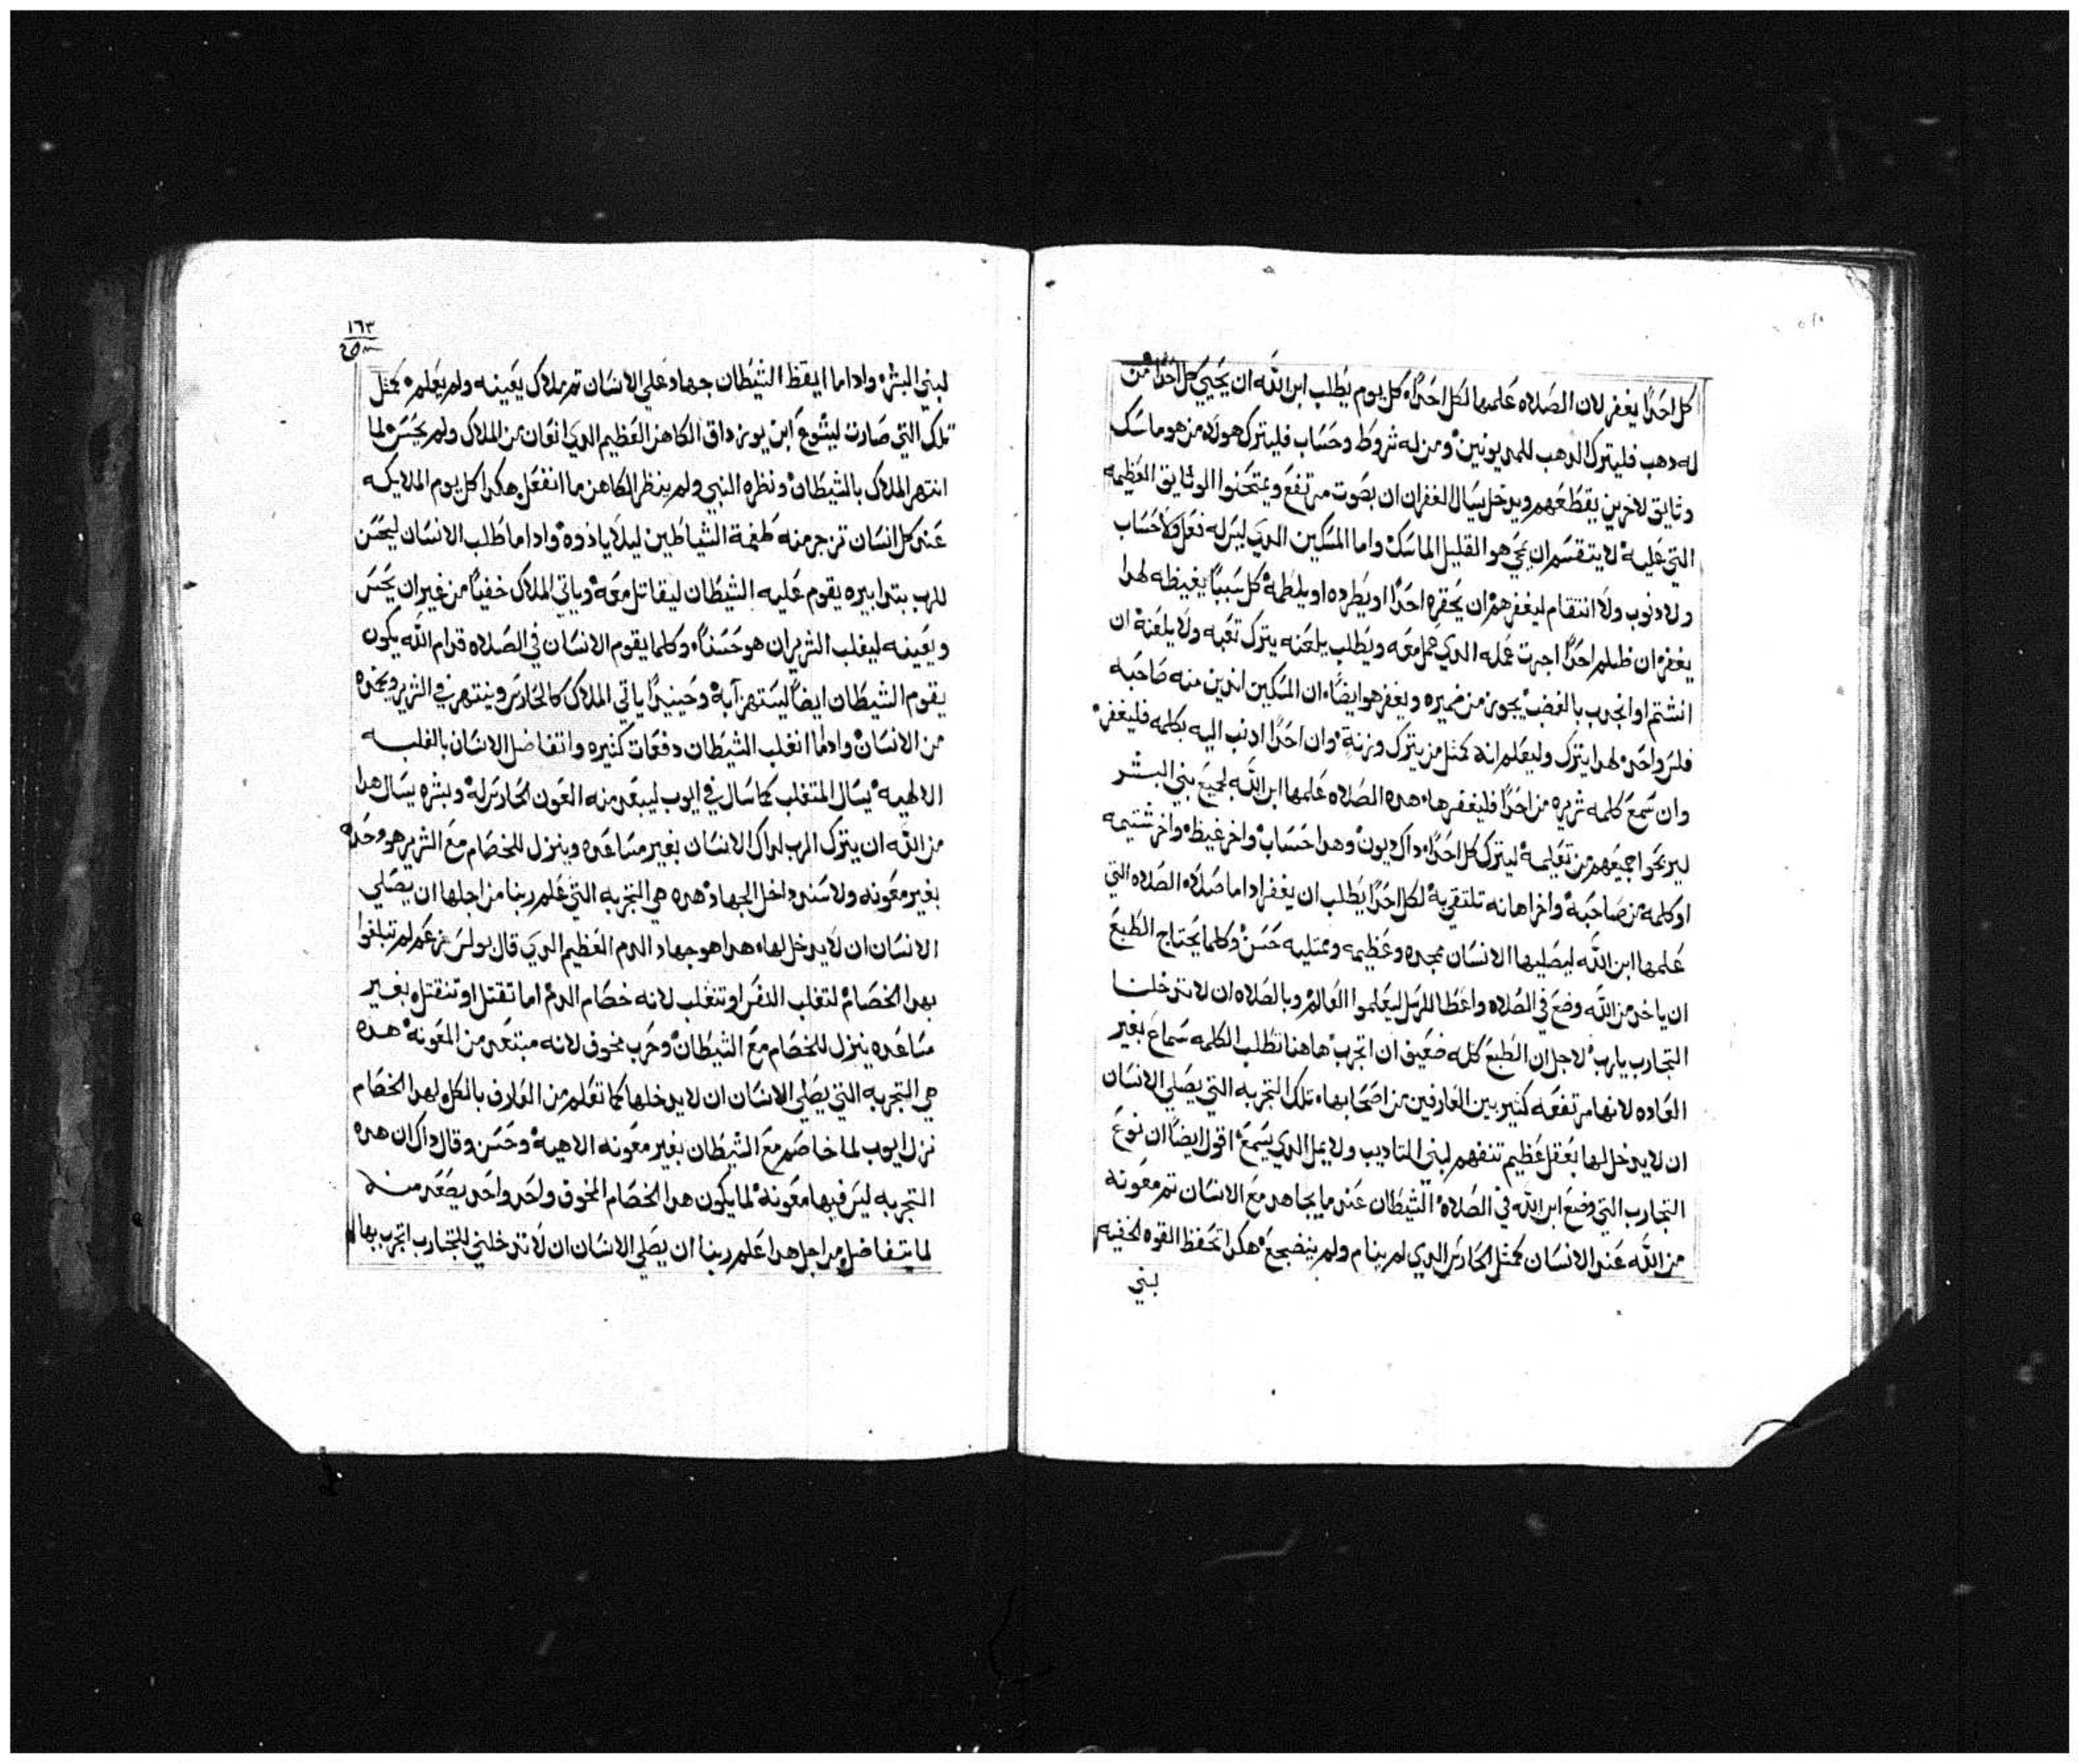 كل احدًا يغفر لان الصلاه علمها لكل احدًا، كل يوم يطلب ابن الله ان يحيي كل احدًا من
له دهب فليترك الدهب للمديونين ومن له شروط وحساب فليترك هولاء من هو ماسك
وثايق لاخرين يقطعهم ويدخل يسال الغفران ان بصوت مرتفع ويمتحنوا الوثايق العظيمه
التي عليه لا يتقسم ان يمحي هو القليل الماسك واما المسكين الدي ليس له فعل ولا حساب
ولا دنوب ولا انتقام ليغفر هم ان يحقره احدًا او يطرده او يلطمه كل سببًا يغيظه لهدا
يغفر ان ظلم احدًا اجرت عمله الدي عمل معه ويطلب يلعنه يترك تعبه ولا يلعنه ان
انشتم او انجرب بالغضب يجوز من ضميره ويغفر هو ايضًا، ان المسكين اندين منه صاحبه
فلس واحد لهدا يترك وليعلم انه كمثل من يترك وزنة وان احدًا ادنب اليه بكلمه فليغفر
وان سمع كلمه شريره من احدًا فليغفرها، هده الصلاه علمها ابن الله لجميع بني البشر
ليربحوا جميعهم من تعليمه ليترك كل احدًا، داك ديون وهدا حساب واخر غيظ واخر شتيمه
او كلمه من صاحبه واخر اهانه تلتقي به لكل احدًا يطلب ان يغفر ادا ما صلاه الصلاه التي
علمها ابن الله ليصليها الانسان ممجده وعظيمه وممتليه حسن وكلما يحتاج الطبع
ان ياخد من الله وضع في الصلاه واعطا للرسل ليعلموا العالم وبالصلاه ان لا تدخلنا
التجارب يارب لاجل ان الطبع كله ضعيف ان اتجرب هاهنا تطلب الكلمه سماع بغير
العاده لانها مرتفعه كثير بين العارفين من اصحابها، تلك التجربه التي يصلي الانسان
ان لا يدخل لها بعقل عظيم تنفهم لبني التاديب ولا يمل الدي يسمع اقول ايضًا ان نوع
التجارب التي وضع ابن الله في الصلاه الشيطان عند ما يجاهد مع الانسان تم معونه
من الله عند الانسان كمثل الحارس الدي لم ينام ولم ينضجع هكدا تحفظ القوه الخفيه
بني
١٦٣
لبني البشر وادا ما ايقظ الشيطان جهاد علي الانسان تم ملاك يعينه ولم يعلم كمثل
تلك التي صارت ليشوع ابن يوزداق الكاهن العظيم الدي انعان من الملاك ولم يحسس لما
انتهر الملاك بالشيطان ونظره النبي ولم ينظر الكاهن ما انفعل هكدا كل يوم الملايكه
عند كل انسان تزجر منه طغمة الشياطين ليلا يادوه وادا ما طلب الانسان ليحسن
للرب بتدابيره يقوم عليه الشيطان ليقاتل معه وياتي الملاك خفيًا من غير ان يحسس
ويعينه ليغلب الشرير ان هو حسنًا، وكلما يقوم الانسان في الصلاه قدام الله يكون
يقوم الشيطان ايضًا ليستهز آبه وحينيدًا ياتي الملاك كالحارس وينتهر في الشرير ويخده
من الانسان وادا ما انغلب الشيطان دفعات كثيره واتفاضل الانسان بالغلبه
الالهيه يسال المتغلب كما سال في ايوب ليبتعد منه العون الحارس له وبشره يسال هدا
من الله ان يترك الرب لداك الانسان بغير مساعده وينزل للخصام مع الشرير هو وحده
بغير معونه ولا سند داخل الجهاد هده هي التجربه التي علم ربنا من اجلها ان يصلي
الانسان ان لا يدخل لها، هدا هو جهاد الدم العظيم الدي قال بولس من عمد لم تبلغوا
بهدا الخصام لتغلب النفس او تنغلب لانه خصام الدم اما تقتل او تنقتل بغير
مساعده ينزل للخصام مع الشيطان وحرب مخوف لانه مبتعد من المعونه هده
هي التجربه التي يصلي الانسان ان لا يدخلها كما تعلم من العارف بالكل لهدا الخصام
نزل ايوب لما خاصم مع الشيطان بغير معونه الاهيه وحسن وقال داك ان هده
التجربه ليس فيها معونه لما يكون هدا الخصام المخوف واحد واحد يصعد منه
لما يتفاضل من اجل هدا علم ربنا ان يصلي الانسان ان لا تدخلني للتجارب اتجرب بها